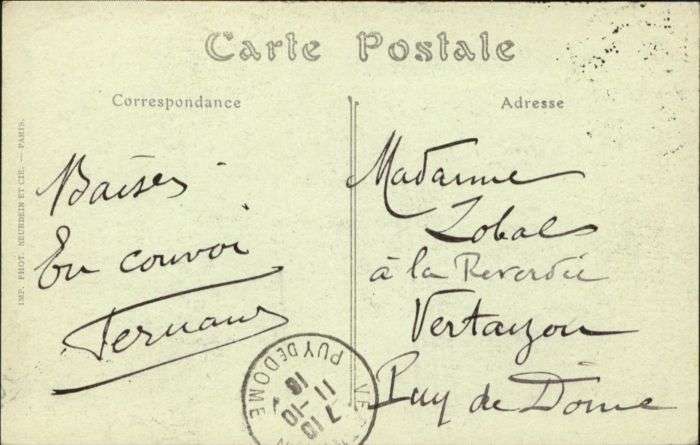 Carte Postale
Correspondance
Adresse
IMP. PHOT. NEURDEIN ET CIE. — PARIS.
Baisers
En convoi
Fernand
Madame
Zobal
à la Reverdie
Vertaizon
Puy de Dôme
PUY DE DOME
11-10